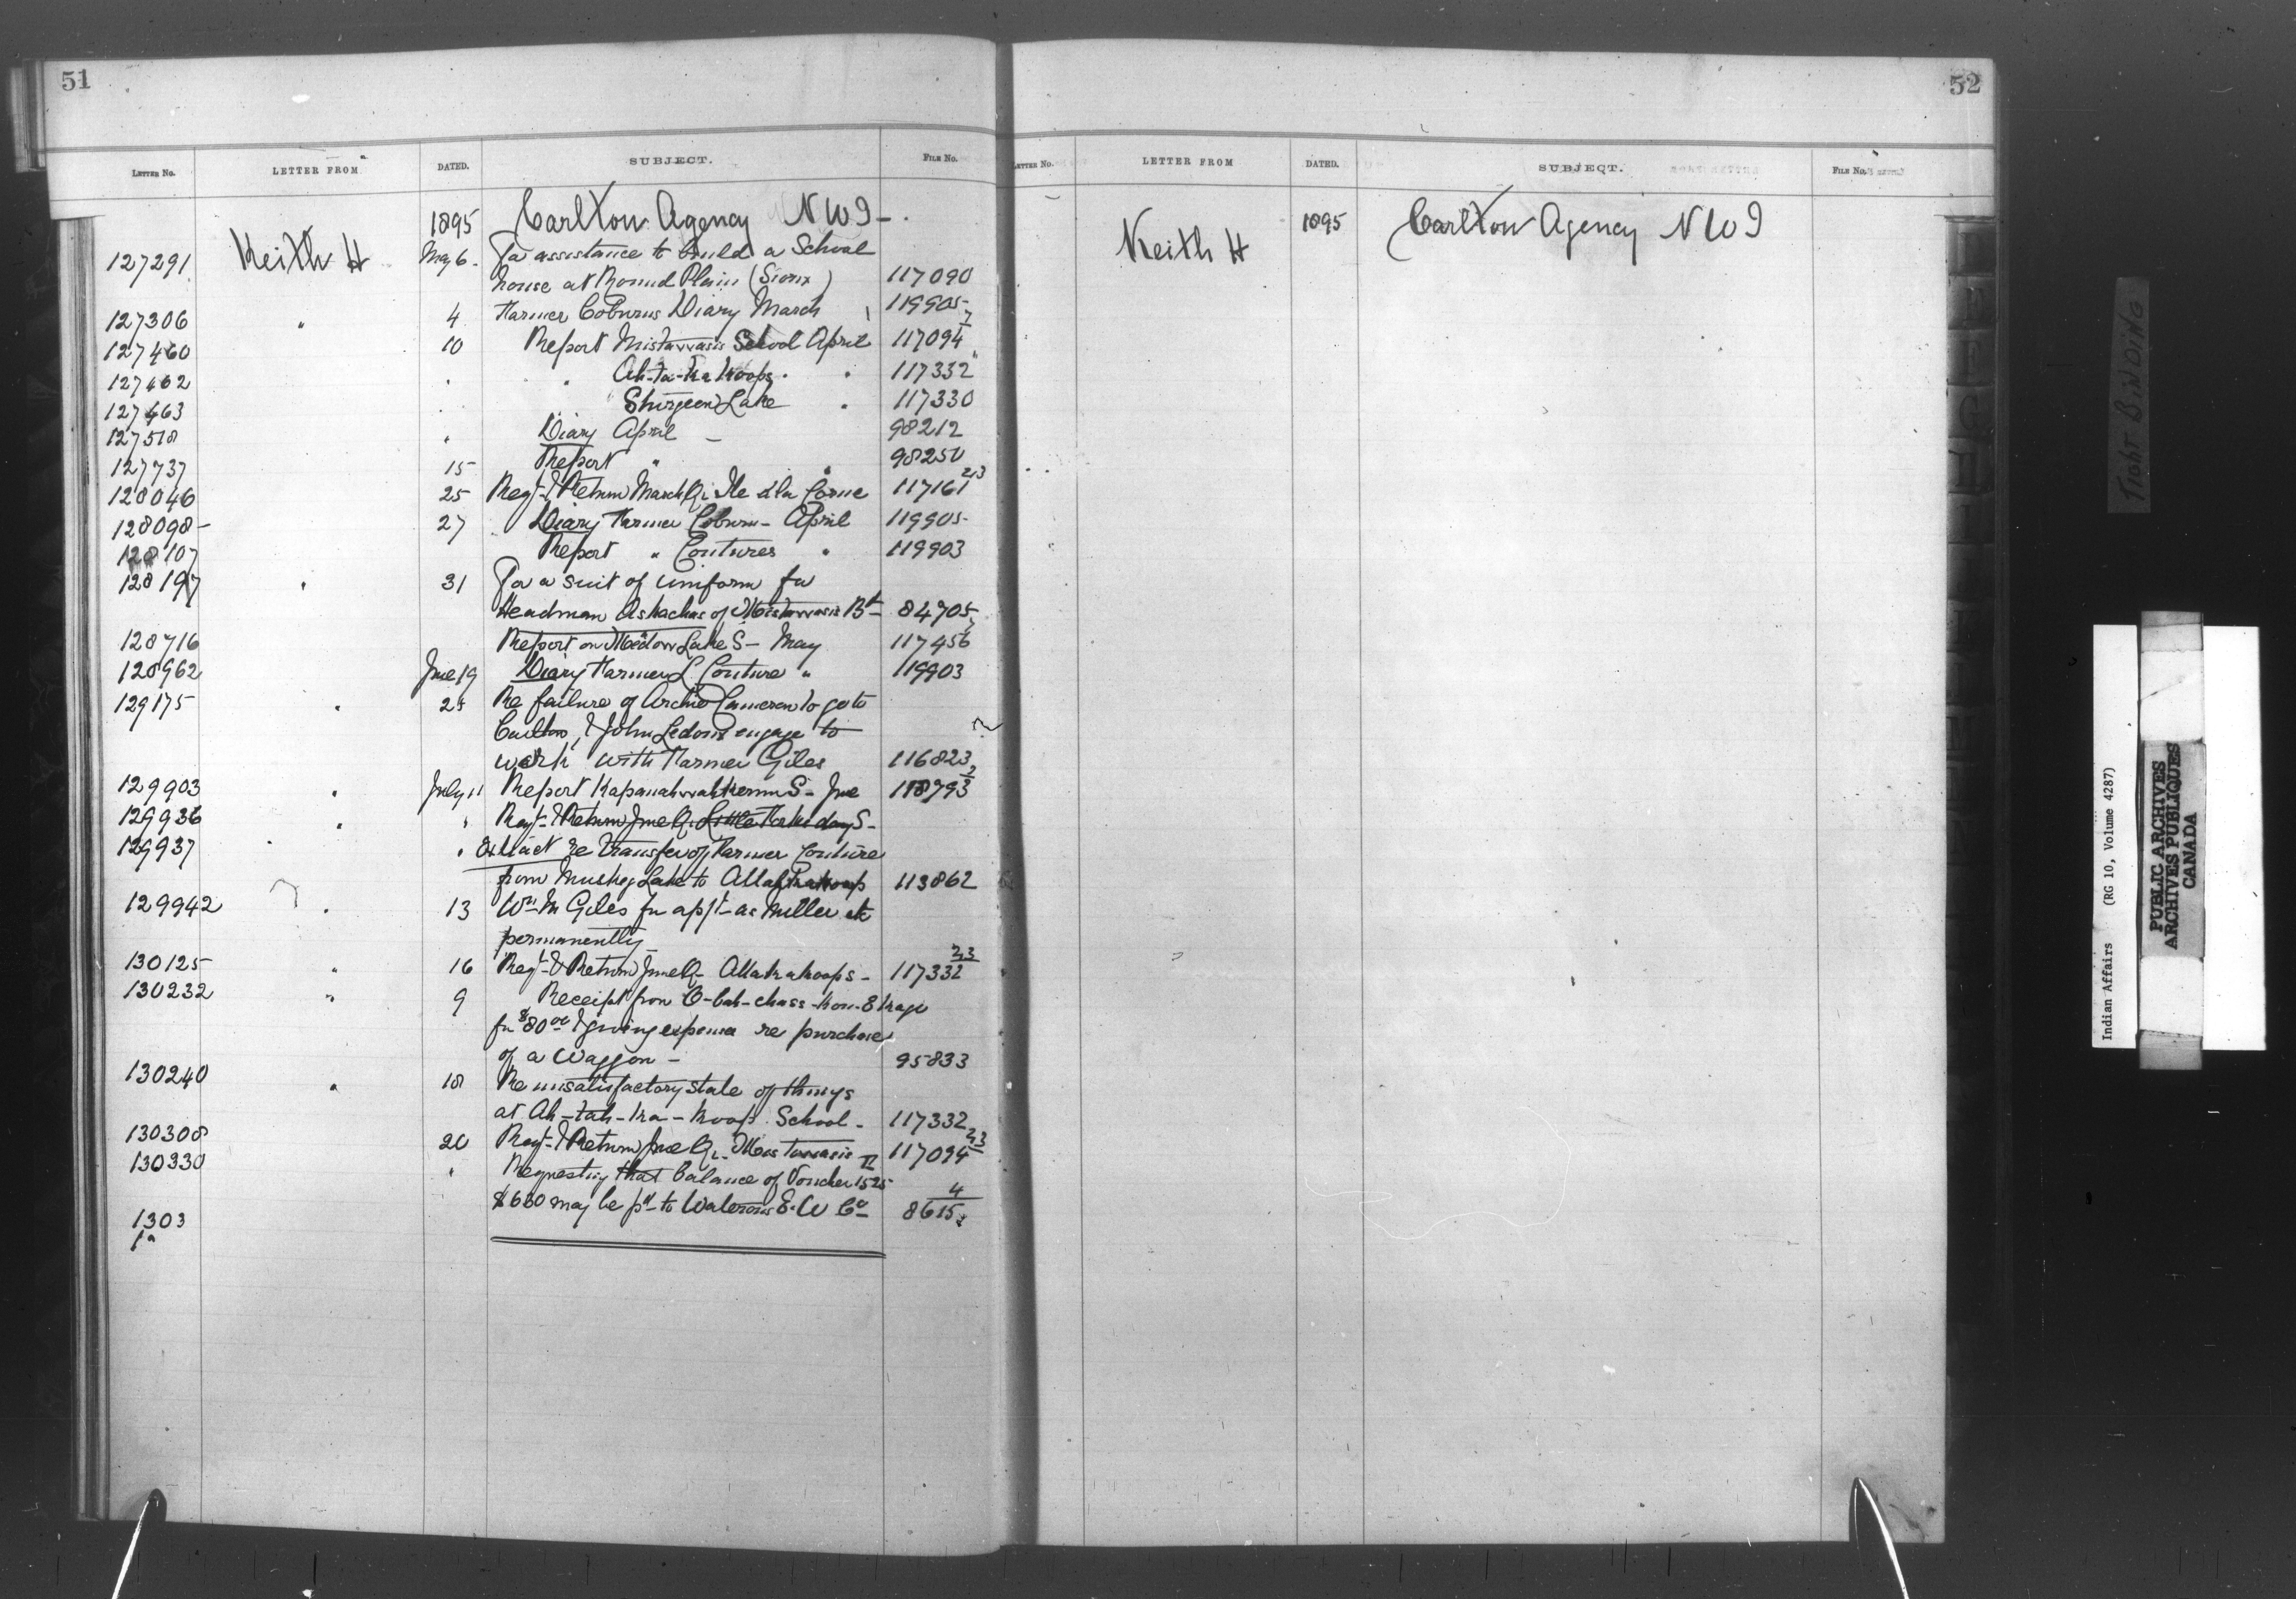 51
LETTER No. LETTER FROM DATED. SUBJECT. FILE No.
1895 Carlton Agency N W T -
127291 Keith H May 6. For assistance to build a School
house at Round Plain (Sioux) 117090
127306 " 4 Farmer Coburns Diary March 119905
127460 10 Report Mistawasis School April 117094
127462 " Ah-ta-ka-koops " 117332
127463 " Sturgeon Lake " 117330
127518 " Diary April 98212
127737 15 Report " 98250
128046 25 Regr & Return March Qr Ile à la Corne 117161 2/3
128098 27 Diary Farmer Coburn - April 119905
128107 Report " Coutures " 119903
128197 " 31 For a suit of uniform for
Headman of Mistawasis Bd 84705
128716 Report on Meadow Lake S - May 117456
128962 June 19 Diary Farmer L Couture " 119903
129175 " 25 Re failure of Archie Cameron to go to
Carlton, & John engage to
work with Farmer Giles 116823
129903 " July 11 Report S - June 118793
129936 " " Regr & Return June Qr S -
129937 " " Extract re transfer of Farmer Couture
from Muskeg Lake to Attahkakoop 113862
129942 " 13 Wm M Giles for appt - as Miller etc
permanently
130125 " 16 Regr & Return June Qr Attakakoops - 117332 2/3
130232 " 9 Receipt from
for $80 00 & giving expense re purchase
of a Waggon - 95833
130240 " 18 Re unsatisfactory state of things
at Ah-tah-ka-koop School - 117332
130308 20 Regr & Return June Qr Mistawasis 117094 2/3
130330 " Requesting that balance of Voucher 1525
$630 may be pd to Waterous E. W Co 8615
1303
1a
52
LETTER No. LETTER FROM DATED. SUBJECT. FILE No.
Keith H 1895 Carlton Agency N W T
TIGHT BINDING
Indian Affairs (RG 10, Volume 4287)
PUBLIC ARCHIVES
ARCHIVES PUBLIQUES
CANADA